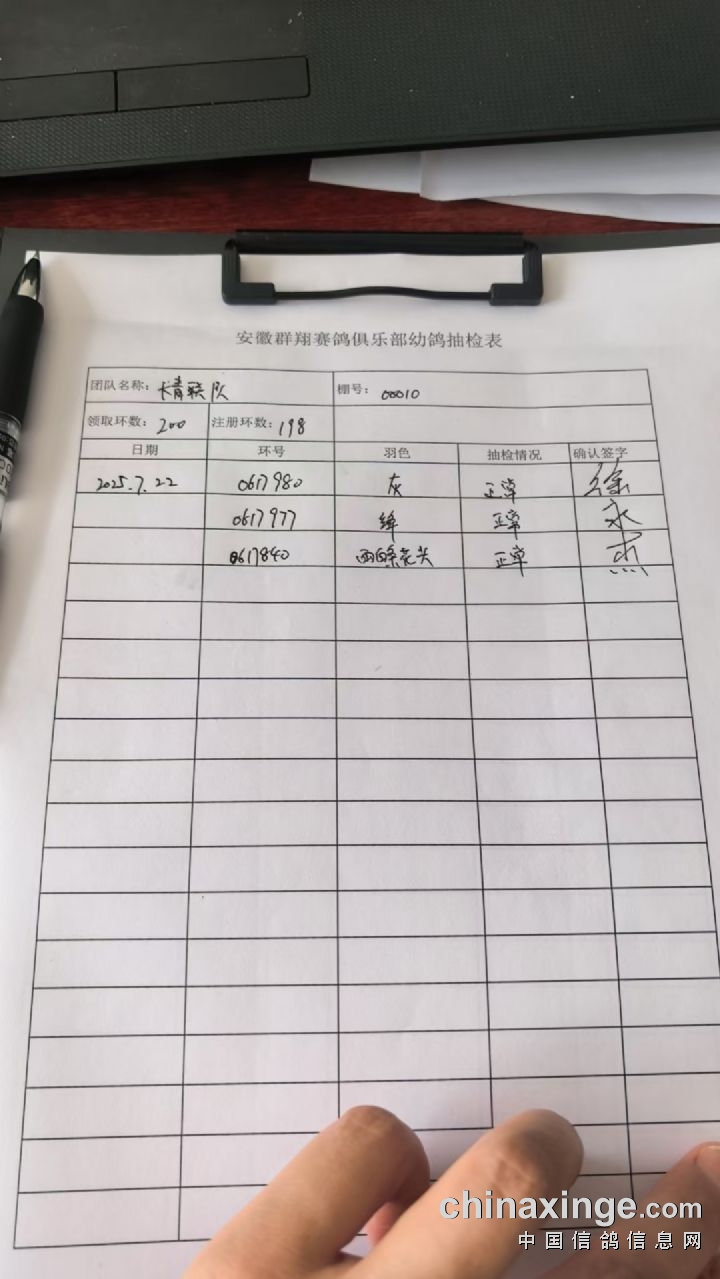 安徽群翔赛鸽俱乐部幼鸽抽检表
团队名称：长青联队 棚号：00010
领取环数：200 注册环数：198
日期 环号 羽色 抽检情况 确认签字
2025.7.22 0617980 灰 正常 徐
0617977 绛 正常 永
0617840 两白条花头 正常 杰
chinaxinge.com
中国信鸽信息网